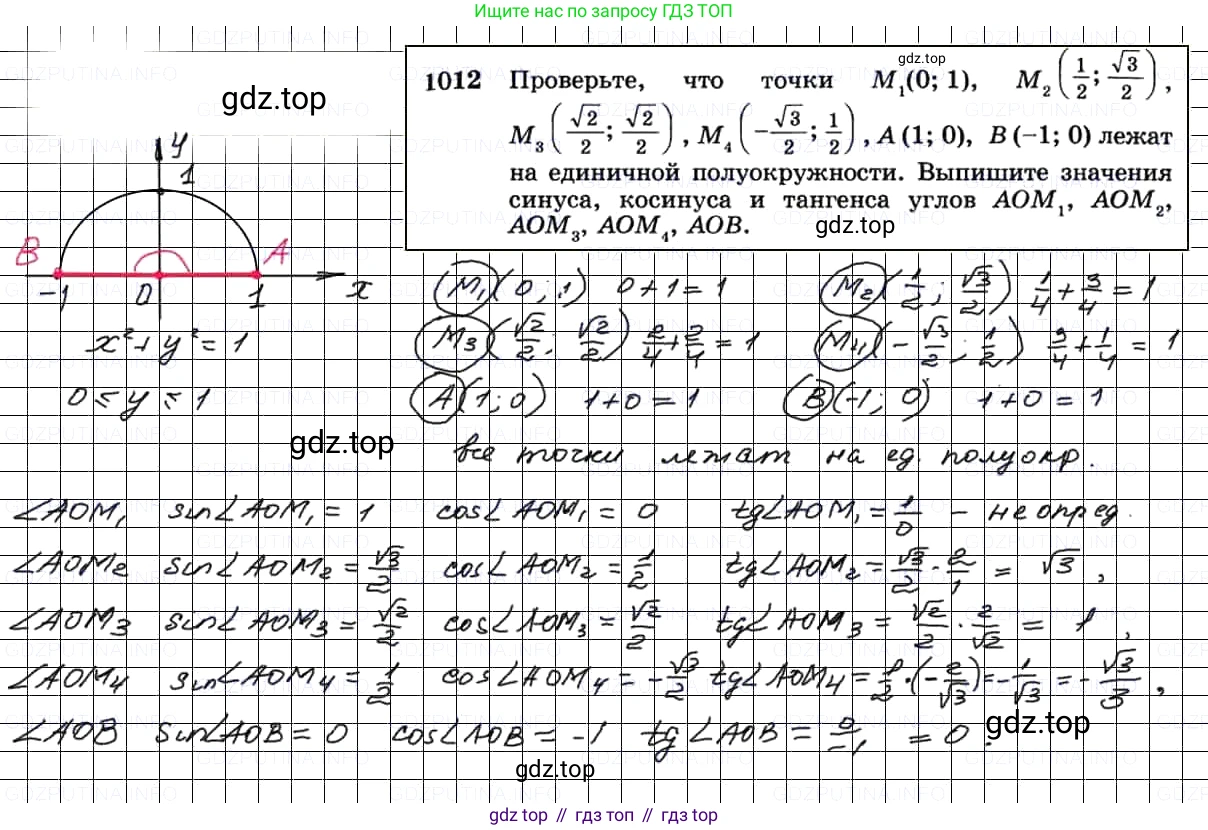 Ищите нас по запросу ГДЗ ТОП
gdz.top
1012 Проверьте, что точки M₁(0; 1), M₂(1/2; √3/2),
M₃(√2/2; √2/2), M₄(−√3/2; 1/2), A (1; 0), B (−1; 0) лежат
на единичной полуокружности. Выпишите значения
синуса, косинуса и тангенса углов AOM₁, AOM₂,
AOM₃, AOM₄, AOB.
gdz.top
gdz.top
y
1
B A
-1 0 1 x
x² + y² = 1
0 ≤ y ≤ 1
M₁(0; 1) 0+1=1 M₂(1/2; √3/2) 1/4 + 3/4 = 1
M₃(√2/2; √2/2) 2/4 + 2/4 = 1 M₄(-√3/2; 1/2) 3/4 + 1/4 = 1
A(1; 0) 1+0=1 B(-1; 0) 1+0=1
gdz.top
все точки лежат на ед. полуокр.
∠AOM₁ sin∠AOM₁ = 1 cos∠AOM₁ = 0 tg∠AOM₁ = 1/0 – не опред.
∠AOM₂ sin∠AOM₂ = √3/2 cos∠AOM₂ = 1/2 tg∠AOM₂ = √3/2 · 2/1 = √3,
∠AOM₃ sin∠AOM₃ = √2/2 cos∠AOM₃ = √2/2 tg∠AOM₃ = √2/2 · 2/√2 = 1,
∠AOM₄ sin∠AOM₄ = 1/2 cos∠AOM₄ = -√3/2 tg∠AOM₄ = 1/2 · (-2/√3) = -1/√3 = -√3/3,
∠AOB sin∠AOB = 0 cos∠AOB = -1 tg∠AOB = 0/-1 = 0.
gdz.top
gdz.top
gdz.top // гдз топ // gdz top
GDZPUTINA.INFO